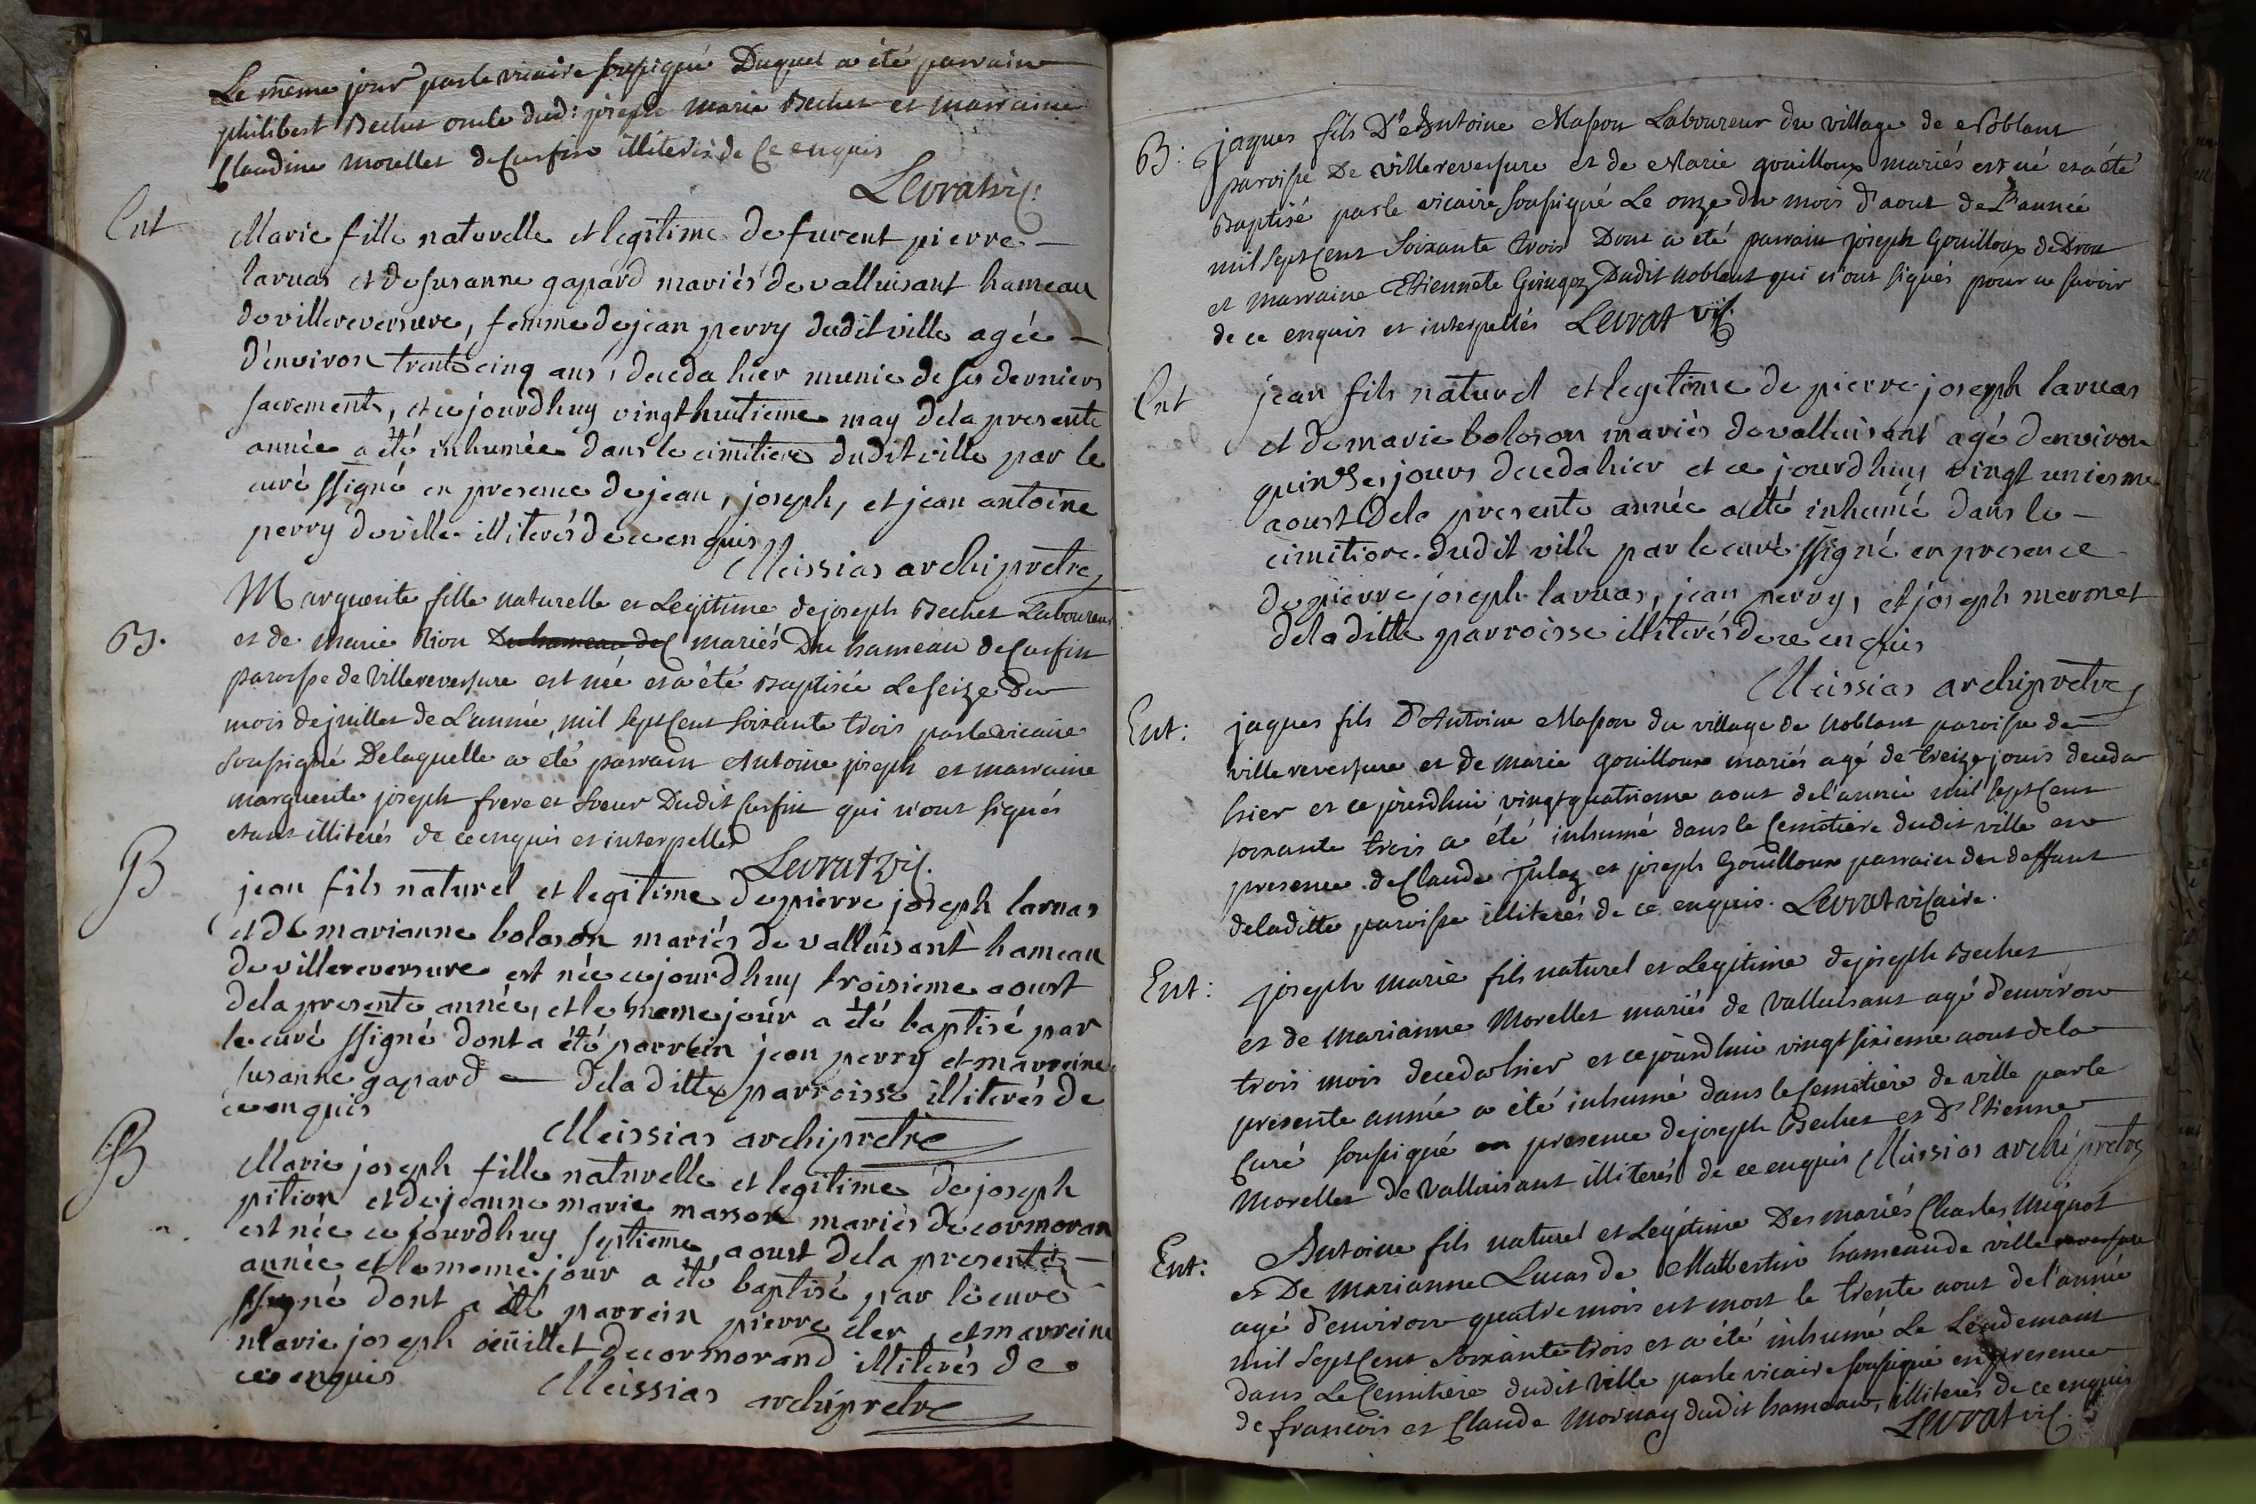 Le même jour par le vicaire soussigné Duquel a été parrain
philibert Bechet oncle dud: joseph marie Bechet et marraine
Claudine morellet de Cusfin illiterés de Ce enquis
Levrat vic.
Ent
Marie fille naturelle et legitime de furent pierre –
laruas et de susanne gapard mariés de valluisant hameau
de villereversure, femme de jean perry dudit ville agée –
d'environ trente cinq ans, deceda hier munie de ses derniers
sacrements, et ce jourdhuy vingt huitieme may de la presente
année a été inhumée dans le cimitiere dudit ville par le
curé ssigné en presence de jean, joseph, et jean antoine
perry de ville illiterés de ce enquis
Meissias archipretre
B.
Marguerite fille naturelle et Legitime de joseph Bechet Laboureur
et de marie Rion Du hameau de C mariés Du hameau de Cusfin
paroisse de Villereversure est née et a été Baptisée Le seize Du
mois de juillet de L'année mil sept Cent soixante trois par le vicaire
soussigné Delaquelle a été parrain Antoine joseph et marraine
marguerite joseph frere et soeur Dudit Cusfin qui n'ont signés
etant illiterés de ce enquis et interpellés
Levrat vic.
B
jean fils naturel et legitime de pierre joseph laruas
et de marianne boloson mariés de valluisant hameau
de villereversure est née ce jourdhuy troisieme aoust
de la presente année, et le meme jour a été baptisé par
le curé ssigné dont a été parrein jean perry et marreine
susanne gapard — de la ditte parroisse illiterés de
ce enquis
Meissias archipretre
B
Marie joseph fille naturelle et legitime de joseph
pition et de jeanne marie masson mariés de cormoran
est née ce jourdhuy septieme aoust de la presente –
année et le meme jour a été baptisé par le curé
ssigné dont a été parrein pierre cler, et marreine
marie joseph oeüillet de cormorand illiterés de
ce enquis
Meissias archipretre
B:
jaques fils D'e Antoine Masson Laboureur du village de Noblant
paroisse De villereversure et de Marie gouilloux mariés est né et a été
Baptisé par le vicaire soussigné Le onze du mois d'aout de L'année
mil sept Cent soixante trois Dont a été parrain joseph Gouilloux de Drom
et marraine Etiennete Gringoz Dudit Noblant qui n'ont signés pour ne savoir
de ce enquis et interpellés Levrat vic.
Ent
jean fils naturel et legitime de pierre joseph laruas
et de marie boloson mariés de valluisant agé d'environ
quinze jours deceda hier et ce jourdhuy vingt unieme
aoust de la presente année a été inhumé dans le –
cimitiere dudit ville par le curé ssigné en presence
de pierre joseph laruas, jean perry, et joseph mermet
de la ditte parroisse illiterés de ce enquis
Meissias archipretre
Ent:
jaques fils D'Antoine Masson du village de Noblant paroisse de
villereversure et de marie gouilloux mariés agé de treize jours deceda
hier et ce jourdhui vingt quatrieme aout de l'année mil sept Cent
soixante trois a été inhumé dans le Cemetiere dudit ville en
presence de Claude Julez et joseph Gouilloux parrain du deffunt
de laditte paroisse illiterés de ce enquis. Levrat vicaire.
Ent:
joseph marie fils naturel et Legitime de joseph Bechet
et de marianne Morellet mariés de valluisant agé d'environ
trois mois deceda hier et ce jourdhui vingt sixieme aout de la
presente année a été inhumé dans le Cemetiere de ville par le
Curé soussigné en presence de joseph Bechet et D'Etienne
Morellet de Valluisant illiterés de ce enquis Meissias archipretre
Ent:
Antoine fils naturel et Legitime Des mariés Charles Mignot
et De marianne Lucas de Mallertin hameau de villereversure
agé d'environ quatre mois est mort le trente aout de l'année
mil sept Cent soixante trois et a été inhumé Le Lendemain
dans Le Cemitiere dudit ville par le vicaire soussigné en presence
de francois et Claude Mornay dudit hameau, illiterés de ce enquis
Levrat vic.